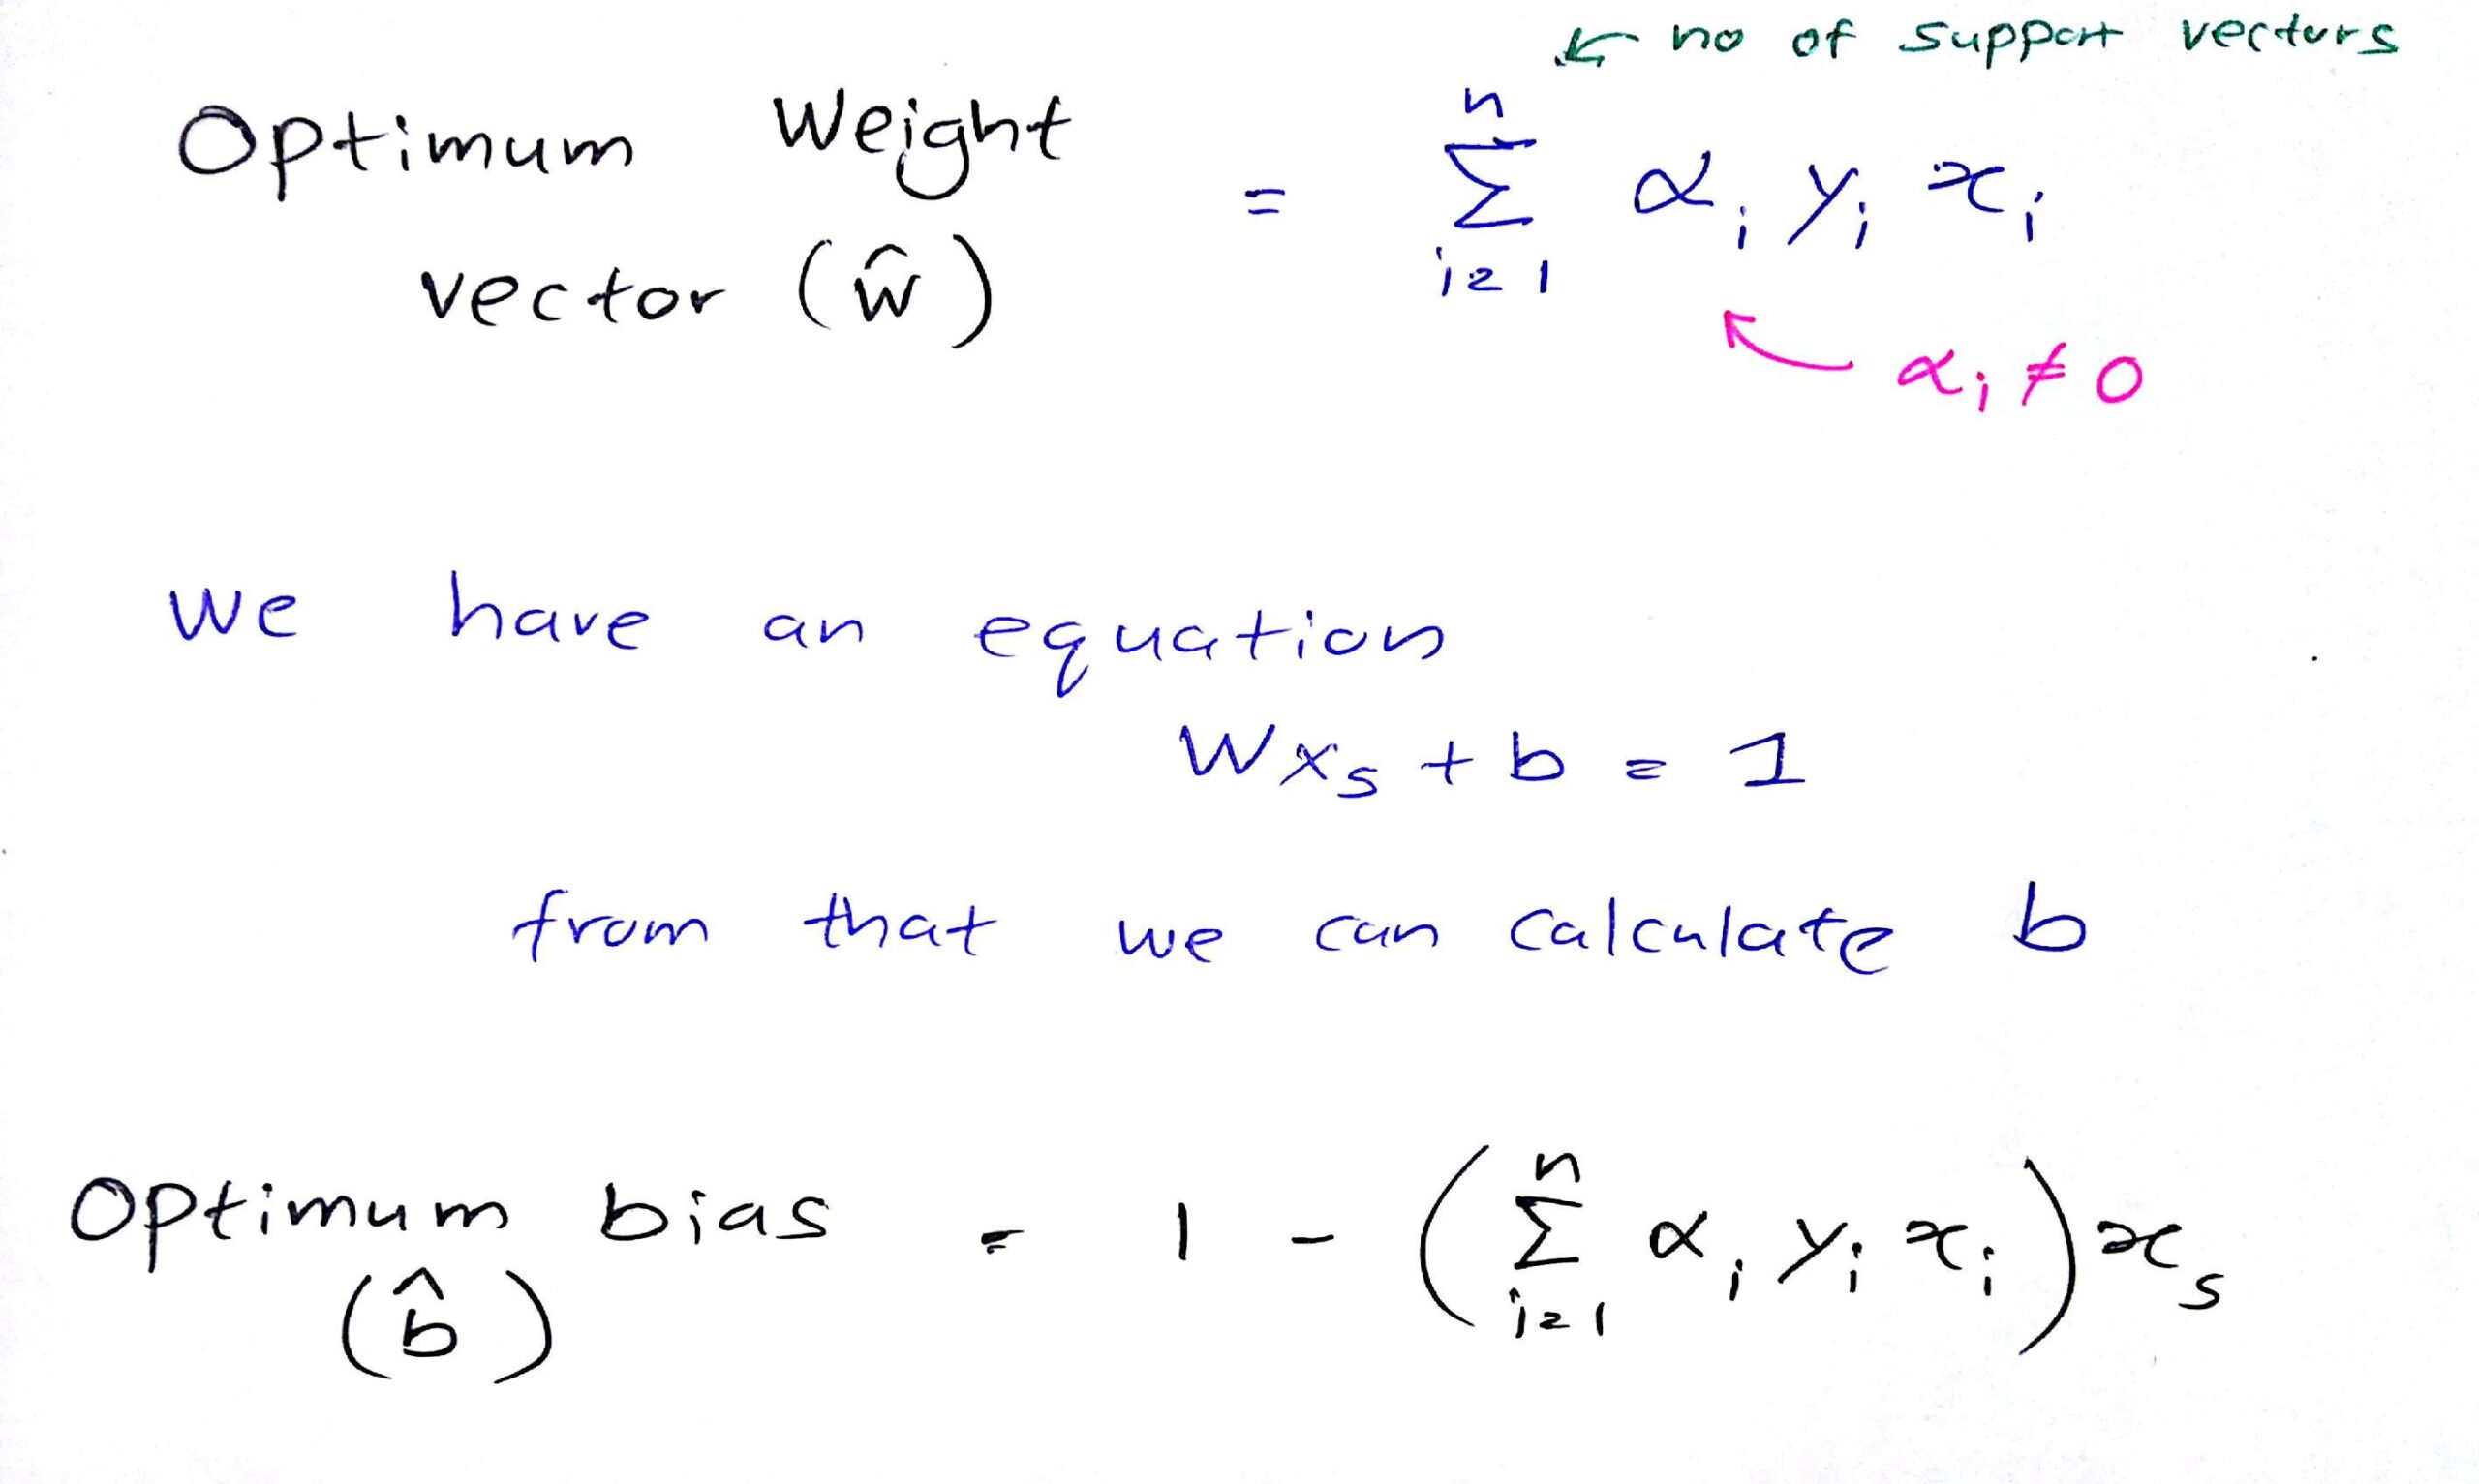 ← no of support vectors
Optimum Weight vector (ŵ) = n Σ i=1 αᵢ yᵢ xᵢ
αᵢ ≠ 0
We have an equation
Wxₛ + b = 1
from that we can calculate b
Optimum bias (b̂) = 1 - (n Σ i=1 αᵢ yᵢ xᵢ) xₛ